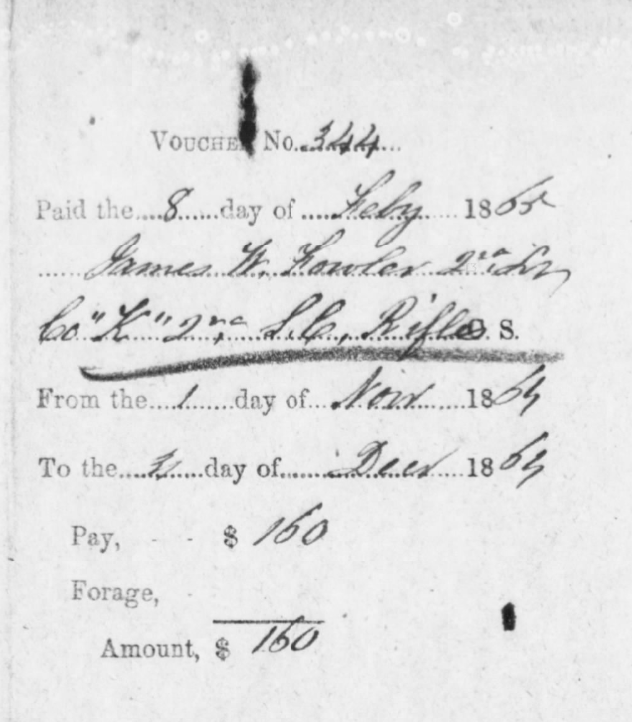 VOUCHER No. 344
Paid the 8 day of Feby 1865
James W. Fowler 2nd Lt
Co "K" 2nd S.C. Rifles S.
From the 1 day of Nov 1864
To the 31 day of Decr 1864
Pay, - - $ 160
Forage, -
Amount, $ 160